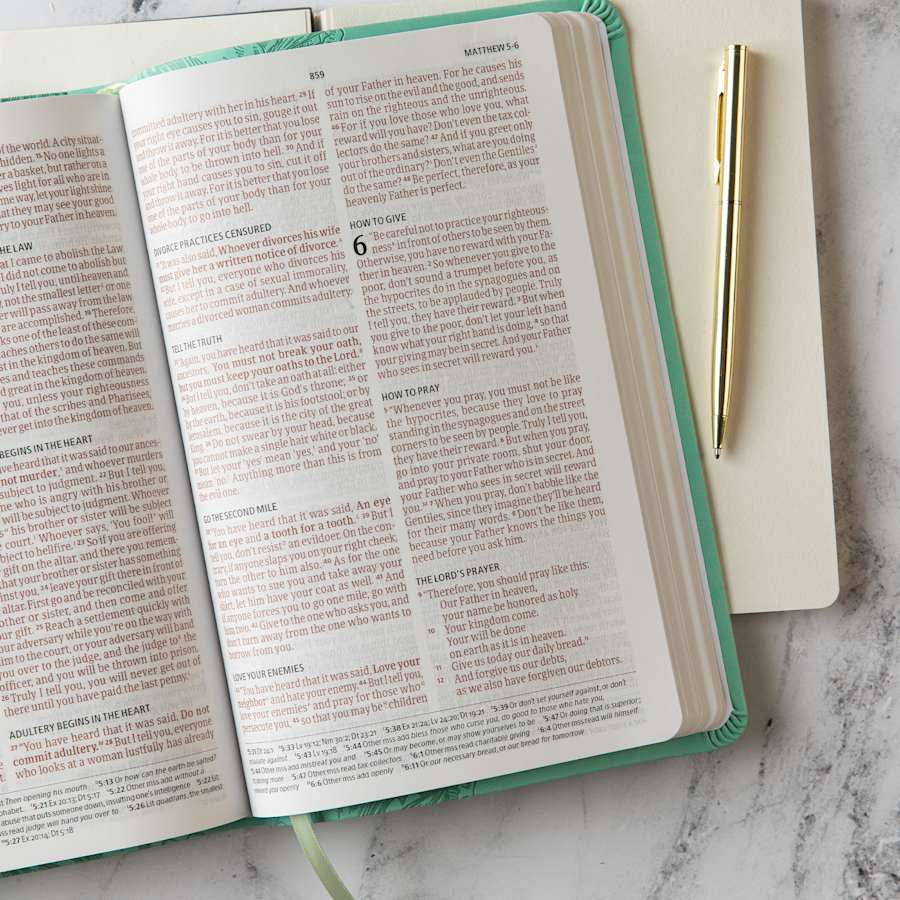 of the world. A city situat-
hidden. 15 No one lights a
er a basket, but rather on a
ves light for all who are in
me way, let your light shine
at they may see your good
ry to your Father in heaven.
HE LAW
at I came to abolish the Law
I did not come to abolish but
Truly I tell you, until heaven and
, not the smallest letter or one
er will pass away from the law
are accomplished. 19 Therefore,
ks one of the least of these com-
aches others to do the same will
st in the kingdom of heaven. But
es and teaches these commands
d great in the kingdom of heaven.
you, unless your righteousness
that of the scribes and Pharisees,
ver get into the kingdom of heaven.
BEGINS IN THE HEART
ave heard that it was said to our ances-
not murder, and whoever murders
subject to judgment. 22 But I tell you,
one who is angry with his brother or
will be subject to judgment. Whoever
his brother or sister will be subject
court. Whoever says, 'You fool!' will
bject to hellfire. 23 So if you are offering
gift on the altar, and there you remem-
that your brother or sister has something
inst you, 24 leave your gift there in front of
altar. First go and be reconciled with your
other or sister, and then come and offer
our gift. 25 Reach a settlement quickly with
our adversary while you're on the way with
im to the court, or your adversary will hand
you over to the judge, and the judge to the
officer, and you will be thrown into prison.
26 Truly I tell you, you will never get out of
there until you have paid the last penny.
ADULTERY BEGINS IN THE HEART
27 "You have heard that it was said, Do not
commit adultery. 28 But I tell you, everyone
who looks at a woman lustfully has already
Then opening his mouth 5:13 Or how can the earth be salted?
phabet. 5:21 Ex 20:13; Dt 5:17 5:22 Other mss add without a
abuse that puts someone down, insulting one's intelligence 5:22 Lit
mss read judge will hand you over to 5:26 Lit quadrans, the smallest
5:27 Ex 20:14; Dt 5:18
859
MATTHEW 5-6
committed adultery with her in his heart. 29 If
your right eye causes you to sin, gouge it out
and throw it away. For it is better that you lose
one of the parts of your body than for your
whole body to be thrown into hell. 30 And if
your right hand causes you to sin, cut it off
and throw it away. For it is better that you lose
one of the parts of your body than for your
whole body to go into hell.
DIVORCE PRACTICES CENSURED
31 "It was also said, Whoever divorces his wife
must give her a written notice of divorce.
32 But I tell you, everyone who divorces his
wife, except in a case of sexual immorality,
causes her to commit adultery. And whoever
marries a divorced woman commits adultery.
TELL THE TRUTH
33 "Again, you have heard that it was said to our
ancestors, You must not break your oath,
but you must keep your oaths to the Lord.
34 But I tell you, don't take an oath at all: either
by heaven, because it is God's throne; 35 or
by the earth, because it is his footstool; or by
Jerusalem, because it is the city of the great
King. 36 Do not swear by your head, because
you cannot make a single hair white or black.
37 But let your 'yes' mean 'yes,' and your 'no'
mean 'no.' Anything more than this is from
the evil one.
GO THE SECOND MILE
38 "You have heard that it was said, An eye
for an eye and a tooth for a tooth. 39 But I
tell you, don't resist an evildoer. On the con-
trary, if anyone slaps you on your right cheek,
turn the other to him also. 40 As for the one
who wants to sue you and take away your
shirt, let him have your coat as well. 41 And
if anyone forces you to go one mile, go with
him two. 42 Give to the one who asks you, and
don't turn away from the one who wants to
borrow from you.
LOVE YOUR ENEMIES
43 "You have heard that it was said, Love your
neighbor and hate your enemy. 44 But I tell you,
love your enemies and pray for those who
persecute you, 45 so that you may be children
of your Father in heaven. For he causes his
sun to rise on the evil and the good, and sends
rain on the righteous and the unrighteous.
46 For if you love those who love you, what
reward will you have? Don't even the tax col-
lectors do the same? 47 And if you greet only
your brothers and sisters, what are you doing
out of the ordinary? Don't even the Gentiles
do the same? 48 Be perfect, therefore, as your
heavenly Father is perfect.
HOW TO GIVE
6 "Be careful not to practice your righteous-
ness in front of others to be seen by them.
Otherwise, you have no reward with your Fa-
ther in heaven. 2 So whenever you give to the
poor, don't sound a trumpet before you, as
the hypocrites do in the synagogues and on
the streets, to be applauded by people. Truly
I tell you, they have their reward. 3 But when
you give to the poor, don't let your left hand
know what your right hand is doing, 4 so that
your giving may be in secret. And your Father
who sees in secret will reward you.
HOW TO PRAY
5 "Whenever you pray, you must not be like
the hypocrites, because they love to pray
standing in the synagogues and on the street
corners to be seen by people. Truly I tell you,
they have their reward. 6 But when you pray,
go into your private room, shut your door,
and pray to your Father who is in secret. And
your Father who sees in secret will reward
you. 7 When you pray, don't babble like the
Gentiles, since they imagine they'll be heard
for their many words. 8 Don't be like them,
because your Father knows the things you
need before you ask him.
THE LORD'S PRAYER
9 "Therefore, you should pray like this:
Our Father in heaven,
your name be honored as holy.
10 Your kingdom come.
Your will be done
on earth as it is in heaven.
11 Give us today our daily bread.
12 And forgive us our debts,
as we also have forgiven our debtors.
5:31 Dt 24:1 5:33 Lv 19:12; Nm 30:2; Dt 23:21 5:38 Ex 21:24; Lv 24:20; Dt 19:21 5:39 Or don't set yourself against, or don't
retaliate against 5:43 Lv 19:18 5:44 Other mss add bless those who curse you, do good to those who hate you,
5:44 Other mss add mistreat you and 5:45 Or may become, or may show yourselves to be 5:47 Or doing that is superior;
5:47 Other mss read tax collectors 6:1 Other mss read charitable giving 6:4 Other mss read will himself
reward you openly 6:6 Other mss add openly 6:11 Or our necessary bread, or our bread for tomorrow